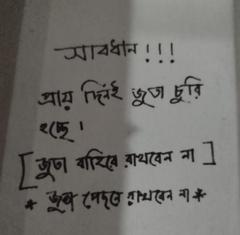 সাবধান!!!
প্রায় দিনই জুতা চুরি
হচ্ছে।
[জুতা বাহিরে রাখবেন না]
* জুতা পেছনে রাখবেন না *